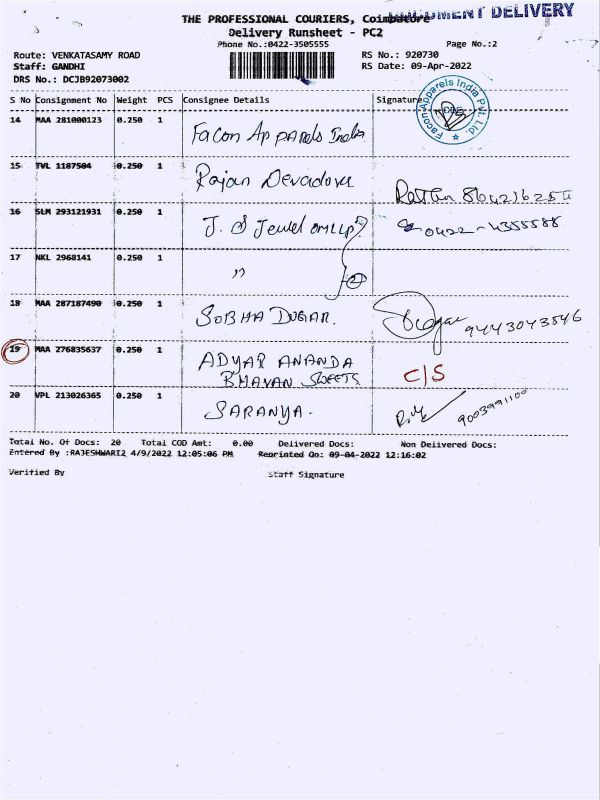 DOCUMENT DELIVERY
THE PROFESSIONAL COURIERS, Coimbatore
Delivery Runsheet - PC2
Phone No.:0422-3505555
Page No.:2
Route: VENKATASAMY ROAD
RS No.: 920730
Staff: GANDHI
RS Date: 09-Apr-2022
DRS No.: DCJB92073002
S No Consignment No Weight PCS Consignee Details Signature
Facon Apparels India Pvt. Ltd.
CBE
14 MAA 281000123 0.250 1 Facon Apparels India
15 TVL 1187504 0.250 1 Rajan Devadoru
8642162511
16 SLM 293121931 0.250 1 J. S Jewel OMLLP 0422-4355588
17 NKL 2968141 0.250 1 " 2
18 MAA 287187490 0.250 1 SOBHA DUGAR. 9443043546
19 MAA 276835637 0.250 1 ADYAR ANANDA
BHAVAN SWEETS C/S
20 VPL 213026365 0.250 1 SARANYA. 9003991100
Total No. Of Docs: 20 Total COD Amt: 0.00 Delivered Docs: Non Delivered Docs:
Entered By :RAJESHWARI2 4/9/2022 12:05:06 PM Reprinted On: 09-04-2022 12:16:02
Verified By Staff Signature